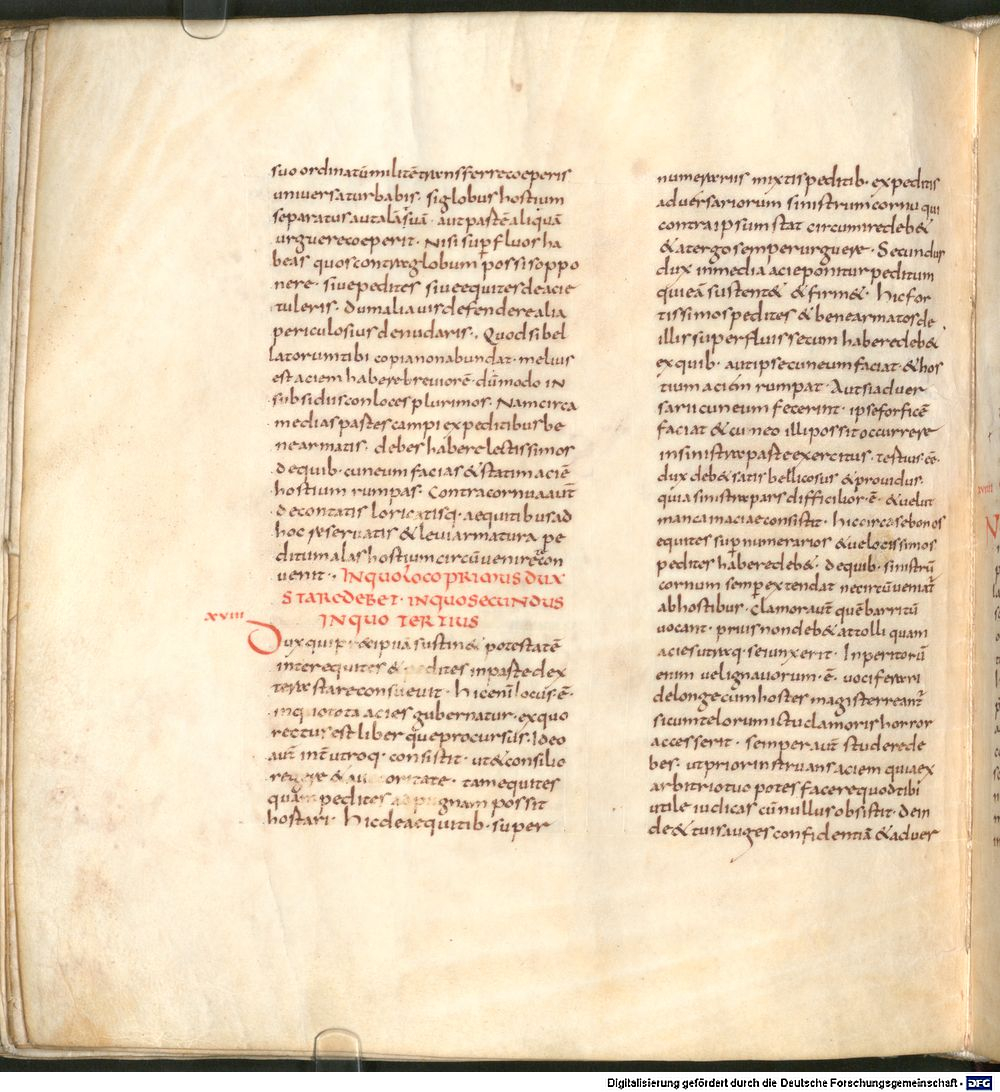 suo ordinatū militē transferre coeperis
universa turbabis · si globus hostium
separatus aut alā suā · aut partē aliquā
urguere coeperit · Nisi sup̄fluos ha
beas quos contra globum possis oppo
nere · sive pedites sive equites de acie
tuleris · dum alia vis defendere alia
periculosius denudaris · Quod si bel
latorum tibi copia non abundat · melius
est aciem habere breviorē · dū modo in
subsidiis conloces plurimos · Nam circa
medias partes campi ex peditibus be
ne armatis · debes habere lectissimos
de quib · cuneum facias & statim aciē
hostium rumpas · Contra cornua aūt
de contatis loricatisq · aequitibus ad
hoc reservatis & levi armatura pe
ditum alas hostium circūvenire con
venit · In quo loco primus dux
stare debet · in quo secundus
in quo tertius
xviii
Dux qui praecipuā sustin& potestatē
inter equites & pedites in parte dex
tera stare consuevit · hic enī locus ē ·
in quo tota acies gubernatur · ex quo
rectus est liber que procursus · Ideo
aūt int̄ utroq · consistit · ut & consilio
regere & auctoritate · tam equites
quam pedites ad pugnam possit
hortari · hic de aequitib · super
numerariis mixtis peditib · expeditis
adversariorum sinistrum cornu qui
contra ipsum stat circumire deb&
& a tergo semper urguere · Secundus
dux in media acie ponitur peditum
qui eā sustent& & firm& · hic for
tissimos pedites & bene armatos de
illis superfluis secum habere deb&
ex quib · aut ipse cuneum faciat · & hos
tium aciem rumpat · Aut si adver
sarii cuneum fecerint · ipse forficē
faciat & cuneo illi possit occurrere
in sinistra parte exercitus · tertius · ēē ·
dux deb& satis bellicosus & providus ·
quia sinistra pars difficilior · ē · & velut
manca in acie consistit · hic circa se bonos
equites sup̄numerarios & velocissimos
pedites habere deb& · de quib · sinistrū
cornum semp̄ extendat ne circūveniat̄
ab hostibus · clamor aūt quē barritū
vocant · prius non deb& attolli quam
acies utraq · se iunxerit · Inperitorū
enim vel ignavorum · ē · vociferari
de longe cum hostes magis terreant̄
si cum telorum ictu clamoris horror
accesserit · semper aūt studere de
bes · ut prior instruas aciem quia ex
arbitrio tuo potes facere quod tibi
utile iudicas cū nullus obsistit · dein
de & tuis auges confidentiā & adver